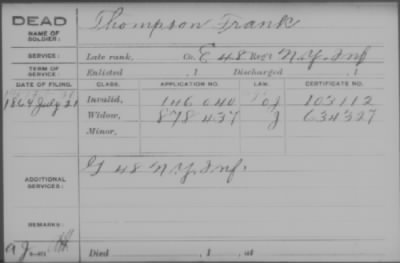 DEAD
NAME OF SOLDIER:
Thompson Frank
SERVICE:
Late rank, Co. E 48 Reg't N.Y. Inf
TERM OF SERVICE:
Enlisted , 1 Discharged , 1
DATE OF FILING. CLASS. APPLICATION NO. LAW. CERTIFICATE NO.
1864 July 21 Invalid, 146040 103112
Widow, 878437 634327
Minor,
ADDITIONAL SERVICES:
G 48 N.Y. Inf.
REMARKS:
Died , 1 , at